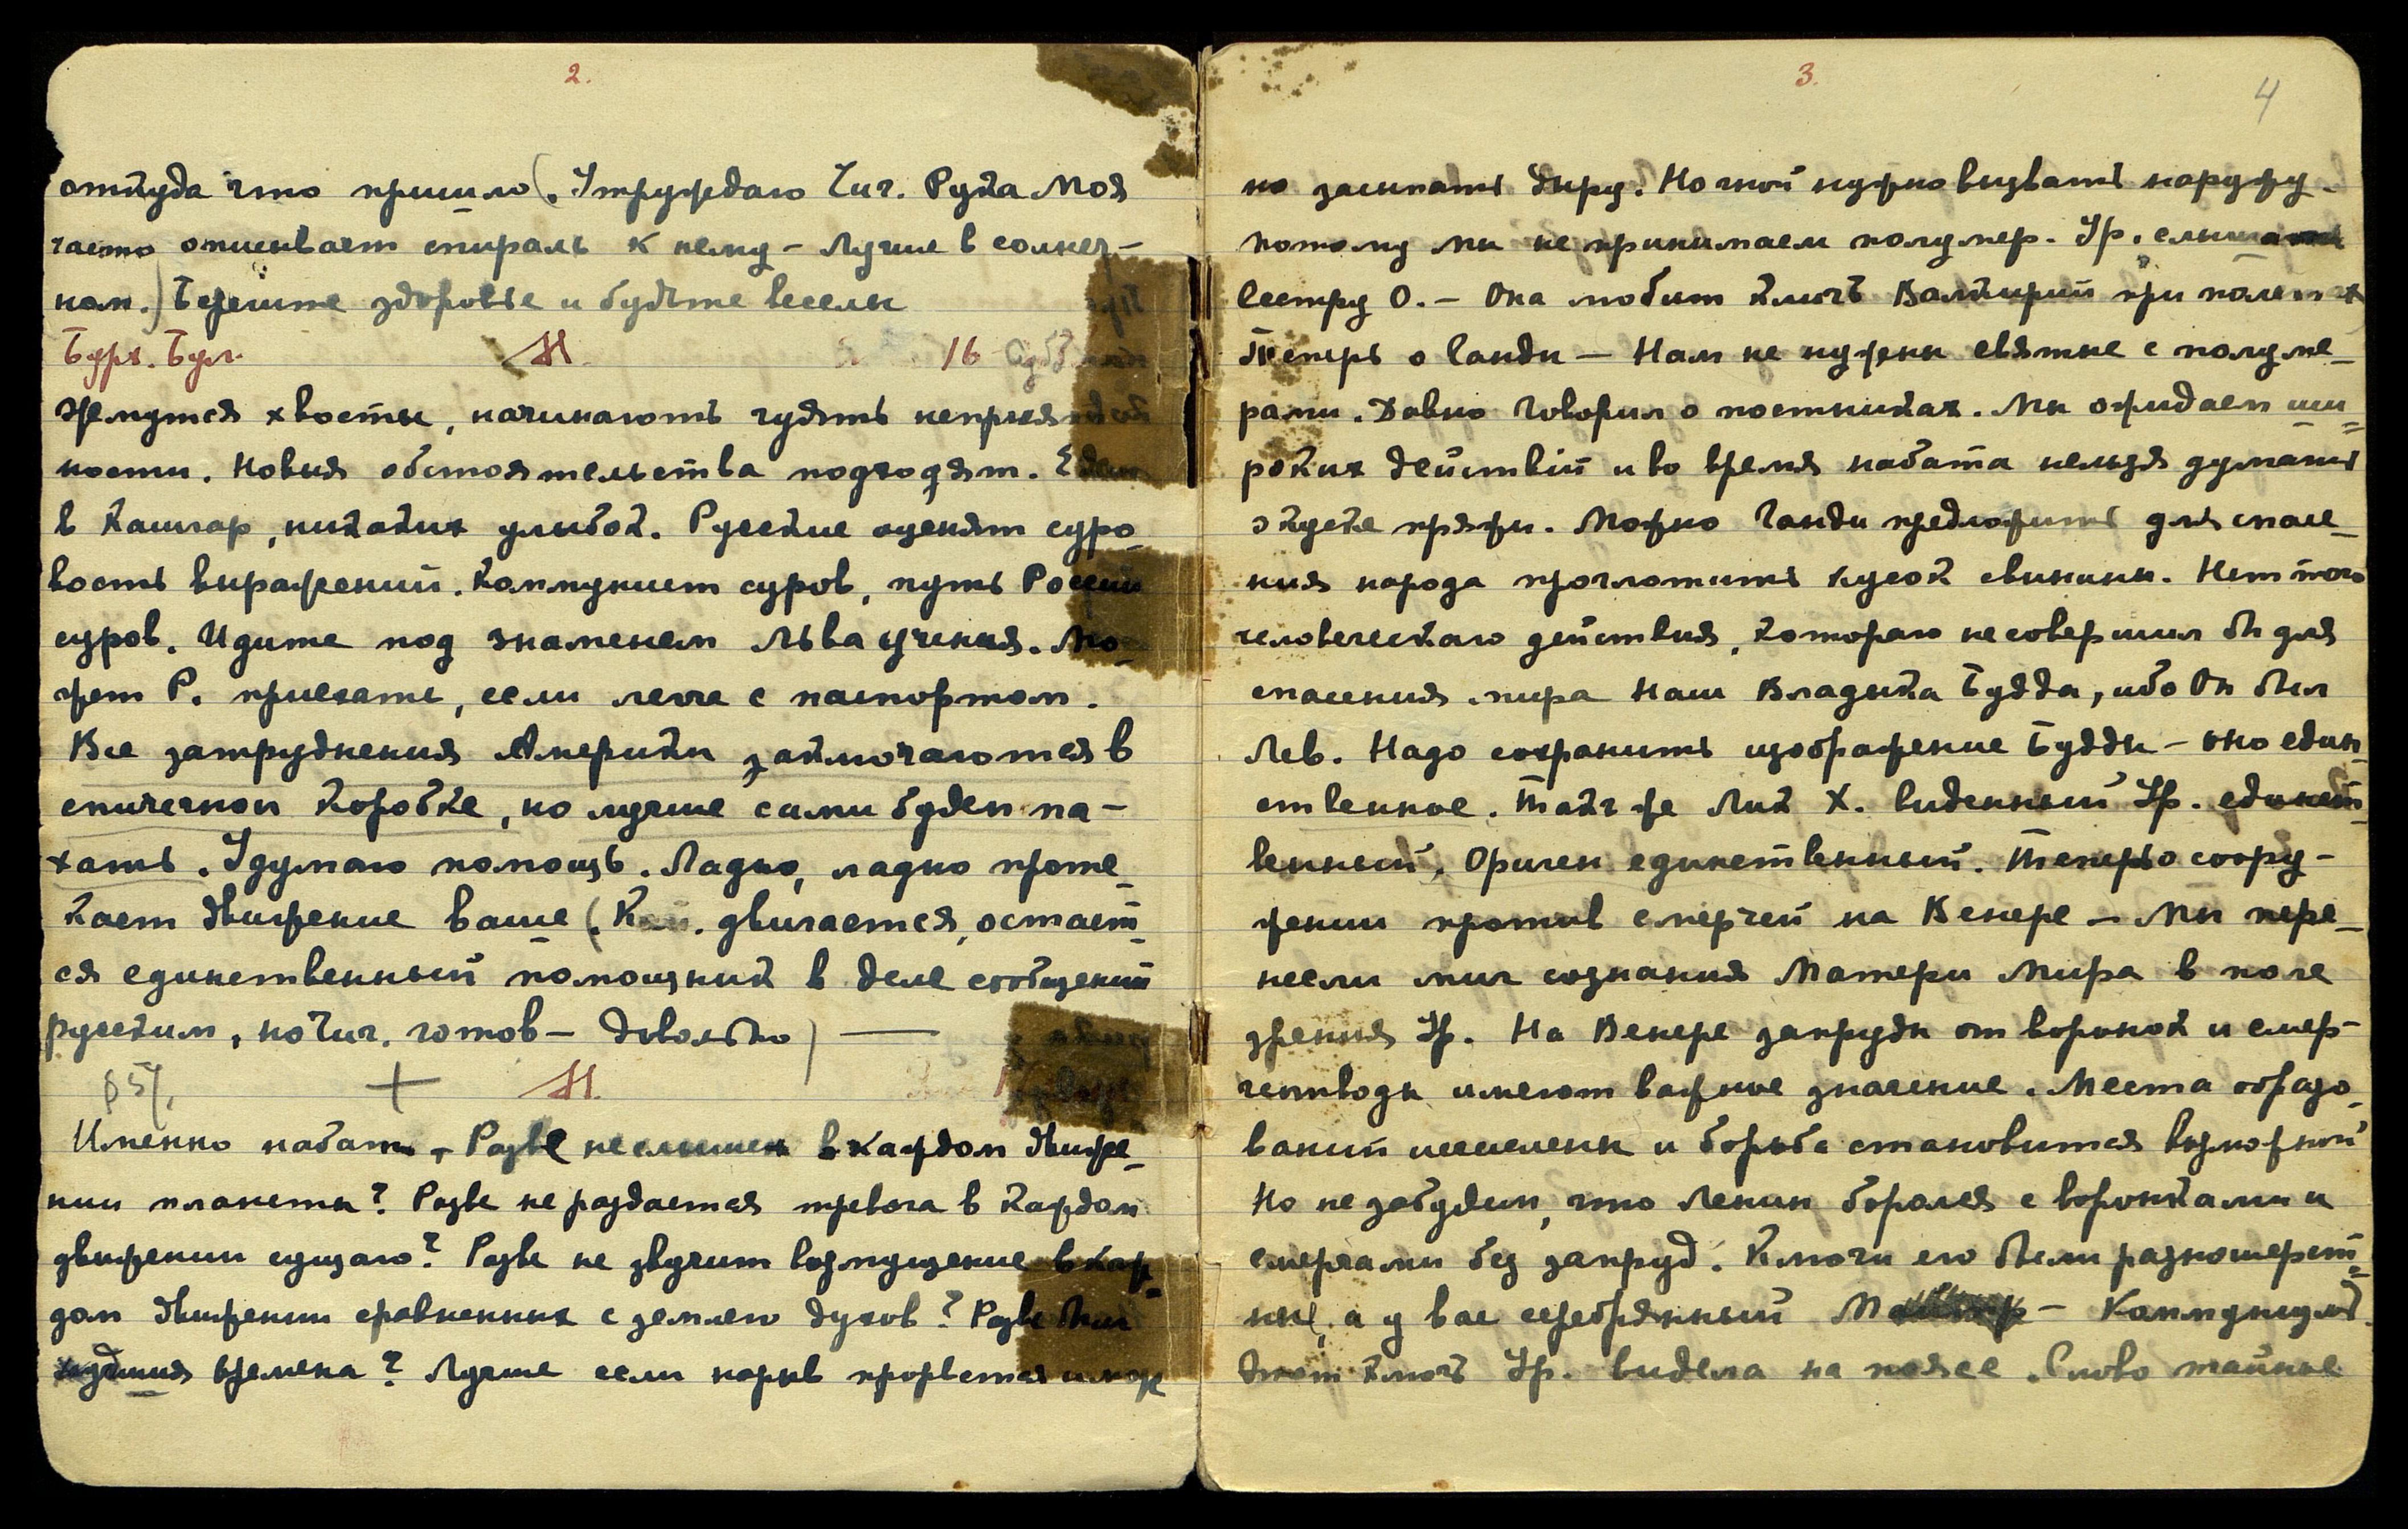 2.
откуда что пришло (. Утруждаю Чиг. Рука Моя
часто описывает спираль к нему – Лучше в солнеч-
ном.) Берегите здоровье и будьте веселы
Бурх. Бул. М. 16
Жмутся хвосты, начинают чуять неприя
ности. Новыя обстоятельства подходят. Едем
в Кашгар, никаких улыбок. Русские оценят суро-
вость выражений. Коммунист суров, путь России
суров. Идите под знаменем Льва учения. Мо-
жет Р. приехать, если легче с паспортом.
Все затруднения Америки заключаются в
спичечной коробке, но лучше сами будем па-
хать. Удумаю помощь. Ладно, ладно проте-
кает движение ваше (. двигается, остает-
ся единственный помощник в деле сообщений
русским, но Чиг. готов – довольно) —
+ М.
Именно набат. Разве не слышен в каждом движе-
нии планеты? Разве не раздается тревога в каждом
движении сущаго? Разве не звучит возмущение в каж-
дом движении сравненных с землею духов? Разве были
худшия времена? Лучше если нарыв прорвется и мож
3.
4
но засыпать дыру. Но гной нужно вызвать наружу –
потому мы не принимаем полумер. Ур. слышать
сестру О. – Она любит ключ Валкирий при полетах
Теперь о Ганди – Нам не нужны святые с полуме-
рами. Давно говорил о постниках. Мы ожидаем ши-
роких действий и во время набата нельзя думать
о куске пряжи. Можно Ганди предложить для спасе-
ния народа проглотить кусок свинины. Нет того
человеческаго действия, котораго не совершил бы для
спасения мира Наш Владыка Будда, ибо Он был
Лев. Надо сохранить изображение Будды – оно един-
ственное. Так же Лик Х. виденный Ур. единст-
венный. Ориген единственный. Теперь о соору-
жении против смерчей на Венере – Мы пере-
несли миг сознания Матери Мира в поле
зрения Ур. На Венере запруды от воронок и смер-
чеотводы имеют важное значение. Места образо-
ваний изчислены и борьба становится возможной
Но не забудем, что Ленин боролся с воронками и
смерчами без запруд. Ключи его были разношерст-
ные, а у вас серебрянный – Коммунизм.
Этот ключ Ур. видела на поясе. Слово тайное